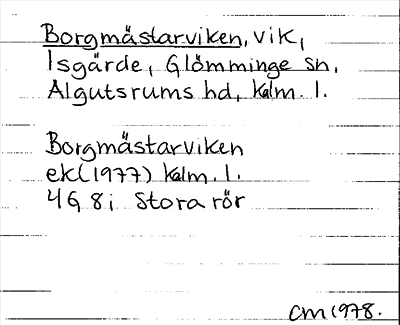 Borgmästarviken, vik,
Isgärde, Glömminge sn,
Algutsrums hd, Kalm. l.
Borgmästarviken
ek (1977) Kalm. l.
4G 8i Stora rör
CM 1978.